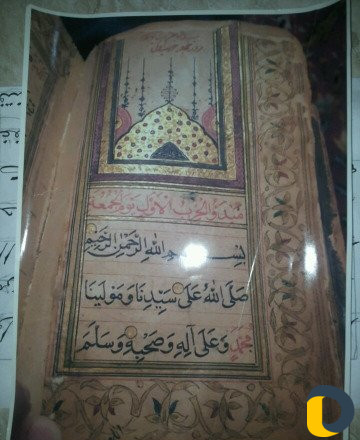 الحزب الاول يوم جمعة
بِسْمِ اللهِ الرَّحْمٰنِ الرَّحِيْمِ
صَلَّى اللهُ عَلَى سَيِّدِنَا وَمَوْلَيْنَا
مُحَمَّدٍ وَعَلَى آلِهِ وَصَحْبِهِ وَسَلَّمَ